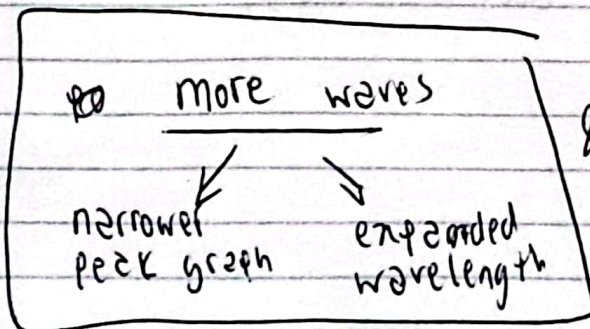 more waves
narrower
peak graph
expanded
wavelength